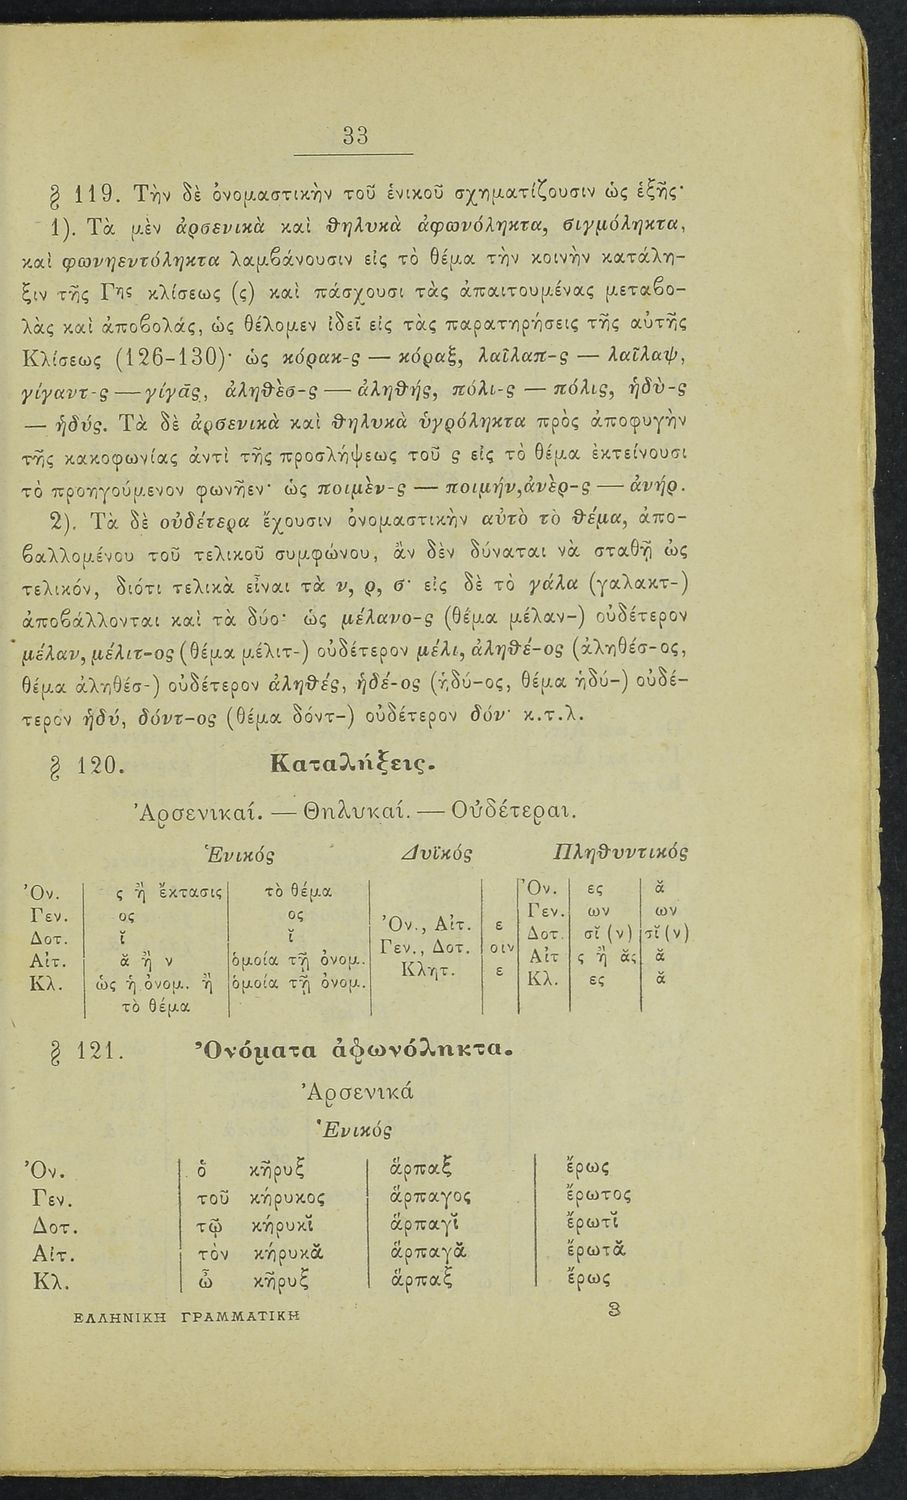 33
§ 119. Τὴν δὲ ὀνομαστικὴν τοῦ ἑνικοῦ σχηματίζουσιν ὡς ἑξῆς·
1). Τὰ μὲν ἀρσενικὰ καὶ θηλυκὰ ἀφωνόληκτα, σιγμόληκτα,
καὶ φωνηεντόληκτα λαμβάνουσιν εἰς τὸ θέμα τὴν κοινὴν κατάλη-
ξιν τῆς Γης κλίσεως (ς) καὶ πάσχουσι τὰς ἀπαιτουμένας μεταβο-
λὰς καὶ ἀποβολάς, ὡς θέλομεν ἰδεῖ εἰς τὰς παρατηρήσεις τῆς αὐτῆς
Κλίσεως (126-130)· ὡς κόρακ-ς — κόραξ, λαῖλαπ-ς — λαῖλαψ,
γίγαντ-ς — γίγᾱς, ἀληθὲσ-ς — ἀληθής, πόλι-ς — πόλις, ἡδὺ-ς
— ἡδύς. Τὰ δὲ ἀρσενικὰ καὶ θηλυκὰ ὑγρόληκτα πρὸς ἀποφυγὴν
τῆς κακοφωνίας ἀντὶ τῆς προσλήψεως τοῦ ς εἰς τὸ θέμα ἐκτείνουσι
τὸ προηγούμενον φωνῆεν· ὡς ποιμὲν-ς — ποιμήν, ἀνὲρ-ς — ἀνήρ.
2). Τὰ δὲ οὐδέτερα ἔχουσιν ὀνομαστικὴν αὐτὸ τὸ θέμα, ἀπο-
βαλλομένου τοῦ τελικοῦ συμφώνου, ἂν δὲν δύναται νὰ σταθῇ ὡς
τελικόν, διότι τελικὰ εἶναι τὰ ν, ρ, σ· εἰς δὲ τὸ γάλα (γαλακτ-)
ἀποβάλλονται καὶ τὰ δύο· ὡς μέλανο-ς (θέμα μέλαν-) οὐδέτερον
μέλαν, μέλιτ-ος (θέμα μέλιτ-) οὐδέτερον μέλι, ἀληθέ-ος (ἀληθέσ-ος,
θέμα ἀληθέσ-) οὐδέτερον ἀληθές, ἡδέ-ος (ἡδύ-ος, θέμα ἡδύ-) οὐδέ-
τερον ἡδύ, δόντ-ος (θέμα δόντ-) οὐδέτερον δόν· κ.τ.λ.
§ 120. Καταλήξεις.
Ἀρσενικαί. — Θηλυκαί. — Οὐδέτεραι.
Ἑνικός Δυϊκός Πληθυντικός
Ὀν. ς ἢ ἔκτασις τὸ θέμα Ὀν., Αἰτ. ε Ὀν. ες ᾰ
Γεν. ος ος Γεν., Δοτ. οιν Γεν. ων ων
Δοτ. ῐ ῐ Κλητ. ε Δοτ. σῐ (ν) σῐ (ν)
Αἰτ. ᾰ ἢ ν ὁμοία τῇ ὀνομ. Αἰτ ς ἢ ᾰς ᾰ
Κλ. ὡς ἡ ὀνομ. ἢ ὁμοία τῇ ὀνομ. Κλ. ες ᾰ
τὸ θέμα
§ 121. Ὀνόματα ἀφωνόληκτα.
Ἀρσενικά
Ἑνικός
Ὀν. ὁ κῆρυξ ἅρπαξ ἔρως
Γεν. τοῦ κήρυκος ἅρπαγος ἔρωτος
Δοτ. τῷ κήρυκῐ ἅρπαγῐ ἔρωτῐ
Αἰτ. τὸν κήρυκᾰ ἅρπαγᾰ ἔρωτᾰ
Κλ. ὦ κῆρυξ ἅρπαξ ἔρως
ΕΛΛΗΝΙΚΗ ΓΡΑΜΜΑΤΙΚΗ 3